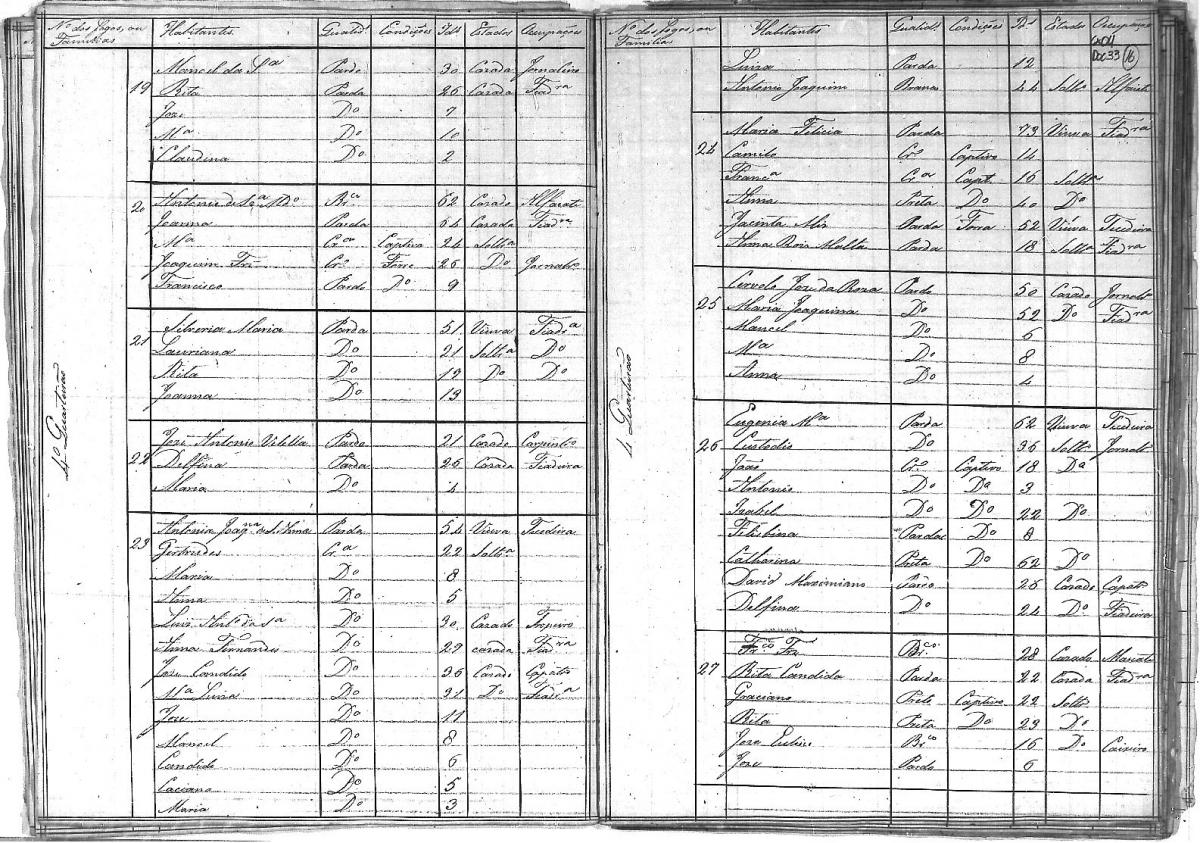 Nº dos Fogos, ou Familias Habitantes Qualid.s Condições Id.s Estados Ocupações
4º Quarteirão
19 Manoel da Sª Pardo 30 Casado Jornaleiro
Rita Parda 26 Casada Fiadrª
Joze Dº 7
Mª Dº 10
Claudina Dº 2
20 Antonio Brco 62 Casado Alfaate
Joanna Parda 64 Casada Fiadrª
Mª Crª Captiva 24 Soltª
Joaquim Crº Forro 26 Dº Jornalrº
Francisco Pardo Dº 9
21 Silveria Maria Parda 51 Viuva Fiadrª
Lauriana Dº 21 Soltª Dº
Rita Dº 19 Dº Dº
Joanna Dº 13
22 Joze Antonio Vilella Pardo 21 Casado Carpintrº
Delfina Parda 26 Casada Fiadeira
Maria Dº 4
23 Antonia Joaqna de S. Anna Parda 54 Viuva Tecedeira
Gertrudes Crª 22 Soltª
Maria Dº 8
Anna Dº 5
Luis Antº da Sª Dº 30 Casado Tropeiro
Anna Fernandes Dº 29 casada Fiadrª
Joze Candido Dº 36 Casado Çapatrº
Mª Luiza Dº 31 Dº Fiadrª
Joze Dº 11
Manoel Dº 8
Candido Dº 6
Caciano Dº 5
Maria Dº 3
Nº dos Fogos, ou Familia Habitantes Qualid.s Condições Id.s Estados Ocupações
Doc 33 16
4º Quarteirão
Luiza Parda 12
Antonio Joaquim Branco 44 Soltº Alfaiate
24 Maria Felicia Parda 73 Viuva Fiadrª
Camilo Crº Captivo 14
Francª Crª Capt. 16 Soltª
Anna Preta Dº 40 Dº
Jacinta Parda Forra 52 Viúva Tecedeira
Anna Roza Malta Parda 18 Soltª Fiadrª
25 Joze da Roza Pardo 50 Casado Jornalrº
Maria Joaquina Dº 52 Dº Fiadrª
Manoel Dº 6
Mª Dº 8
Anna Dº 4
26 Eugenia Mª Parda 62 Viuva Tecedeira
Custodio Dº 36 Soltº Jornalrº
João Crº Captivo 18 Dº
Antonio Dº Dº 3
Izabel Dº Dº 22 Dº
Felisbina Parda Dº 8
Catharina Preta Dº 62 Dº
David Maximiano Pardo 26 Casado Çapatrº
Delfina Dº 24 Dº Fiadeira
27 Frco Brco 28 Casado Mascate
Rita Candida Parda 22 Casada Fiadrª
Graciano Preto Captivo 22 Soltº
Rita Preta Dº 23 Dº
Joze Brco 16 Dº Caixeiro
Joze Pardo 6